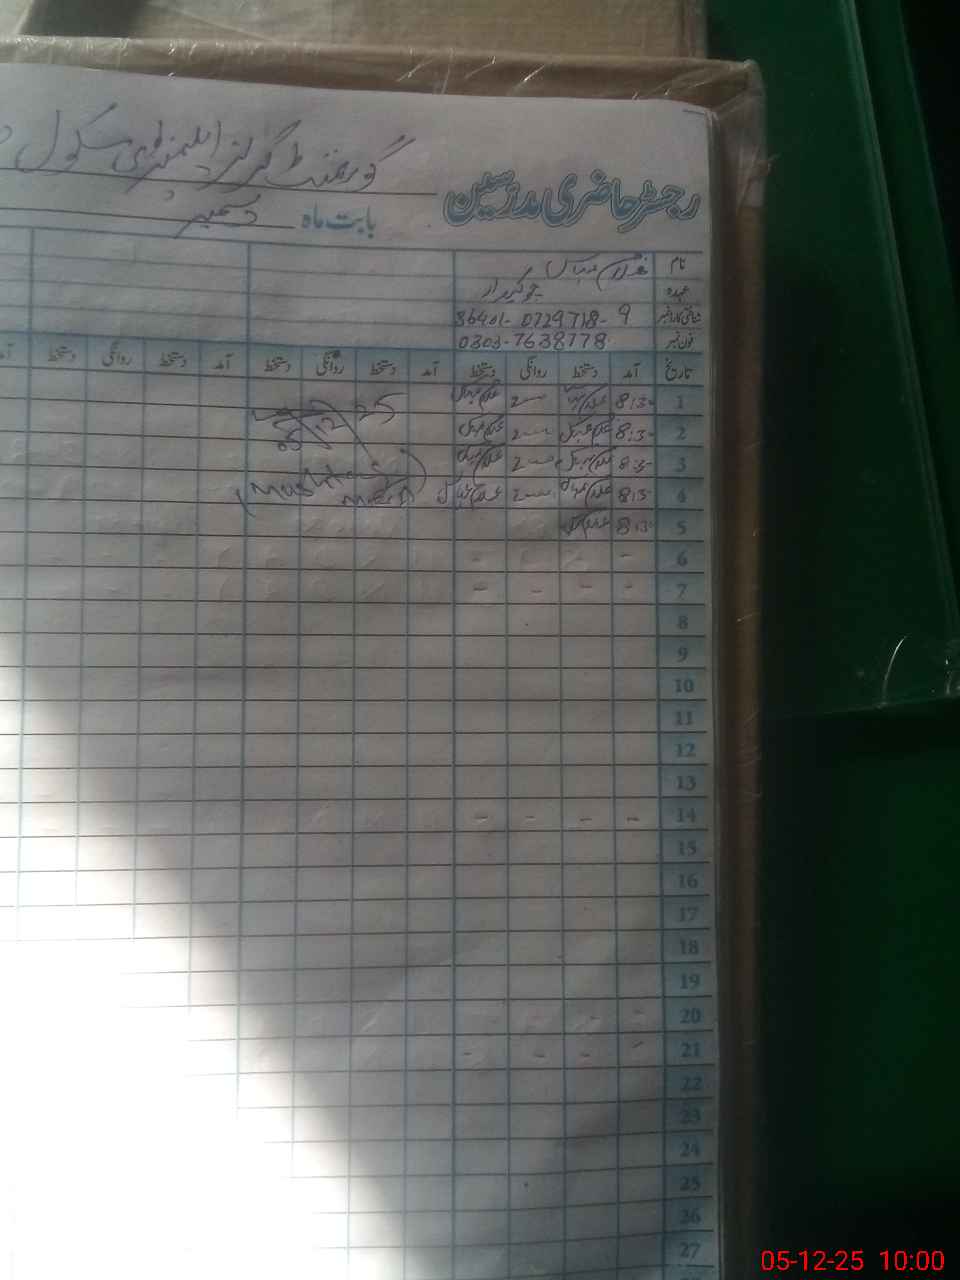 گورنمنٹ گرلز ایلیمنٹری سکول
رجسٹر حاضری مدرسین
بابت ماہ دسمبر
نام غلام عباس
عہدہ چوکیدار
شناختی کارڈ نمبر 36401-0729718-9
فون نمبر 0303-7638778
تاریخ آمد دستخط روانگی دستخط آمد دستخط روانگی دستخط آمد دستخط روانگی دستخط
1 8:3- غلام عباس 2 غلام عباس
2 8:3- غلام عباس 2 غلام عباس
3 8:3- غلام عباس 2 غلام عباس
4 8:3- غلام عباس 2 غلام عباس
5 8:3- غلام عباس
05-12-25
6 - - - -
7 - - - -
8
9
10
11
12
13
14 - - - -
15
16
17
18
19
20 - - - -
21 - - - -
22
23
24
25
26
27
05-12-25 10:00